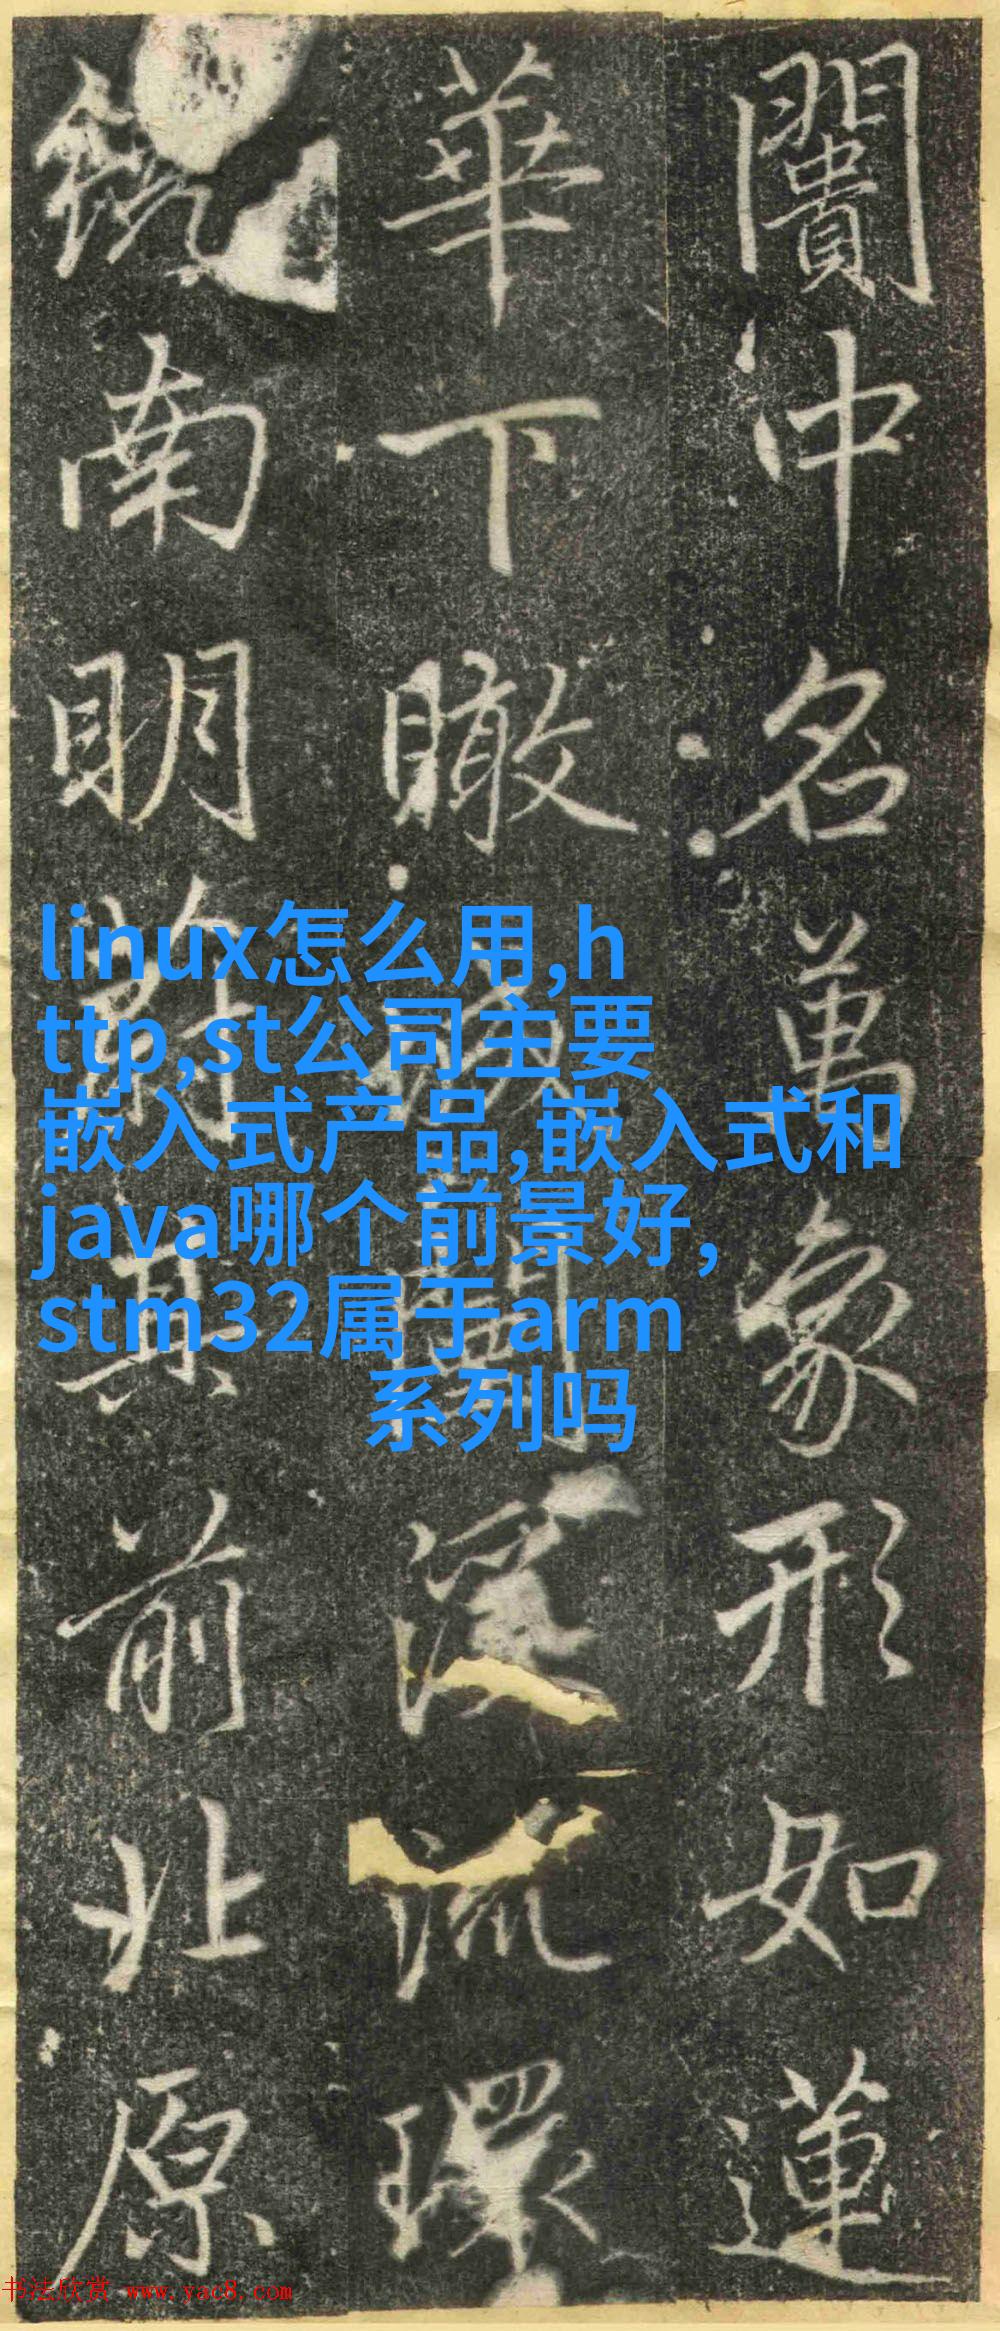 闠中名萬象形如蓮
華下瞰環
南明其前北原
linux怎么用,h
ttp,st公司主要
嵌入式产品,嵌入式和
java哪个前景好,
stm32属于arm
系列吗
书法欣赏 www.yac8.com